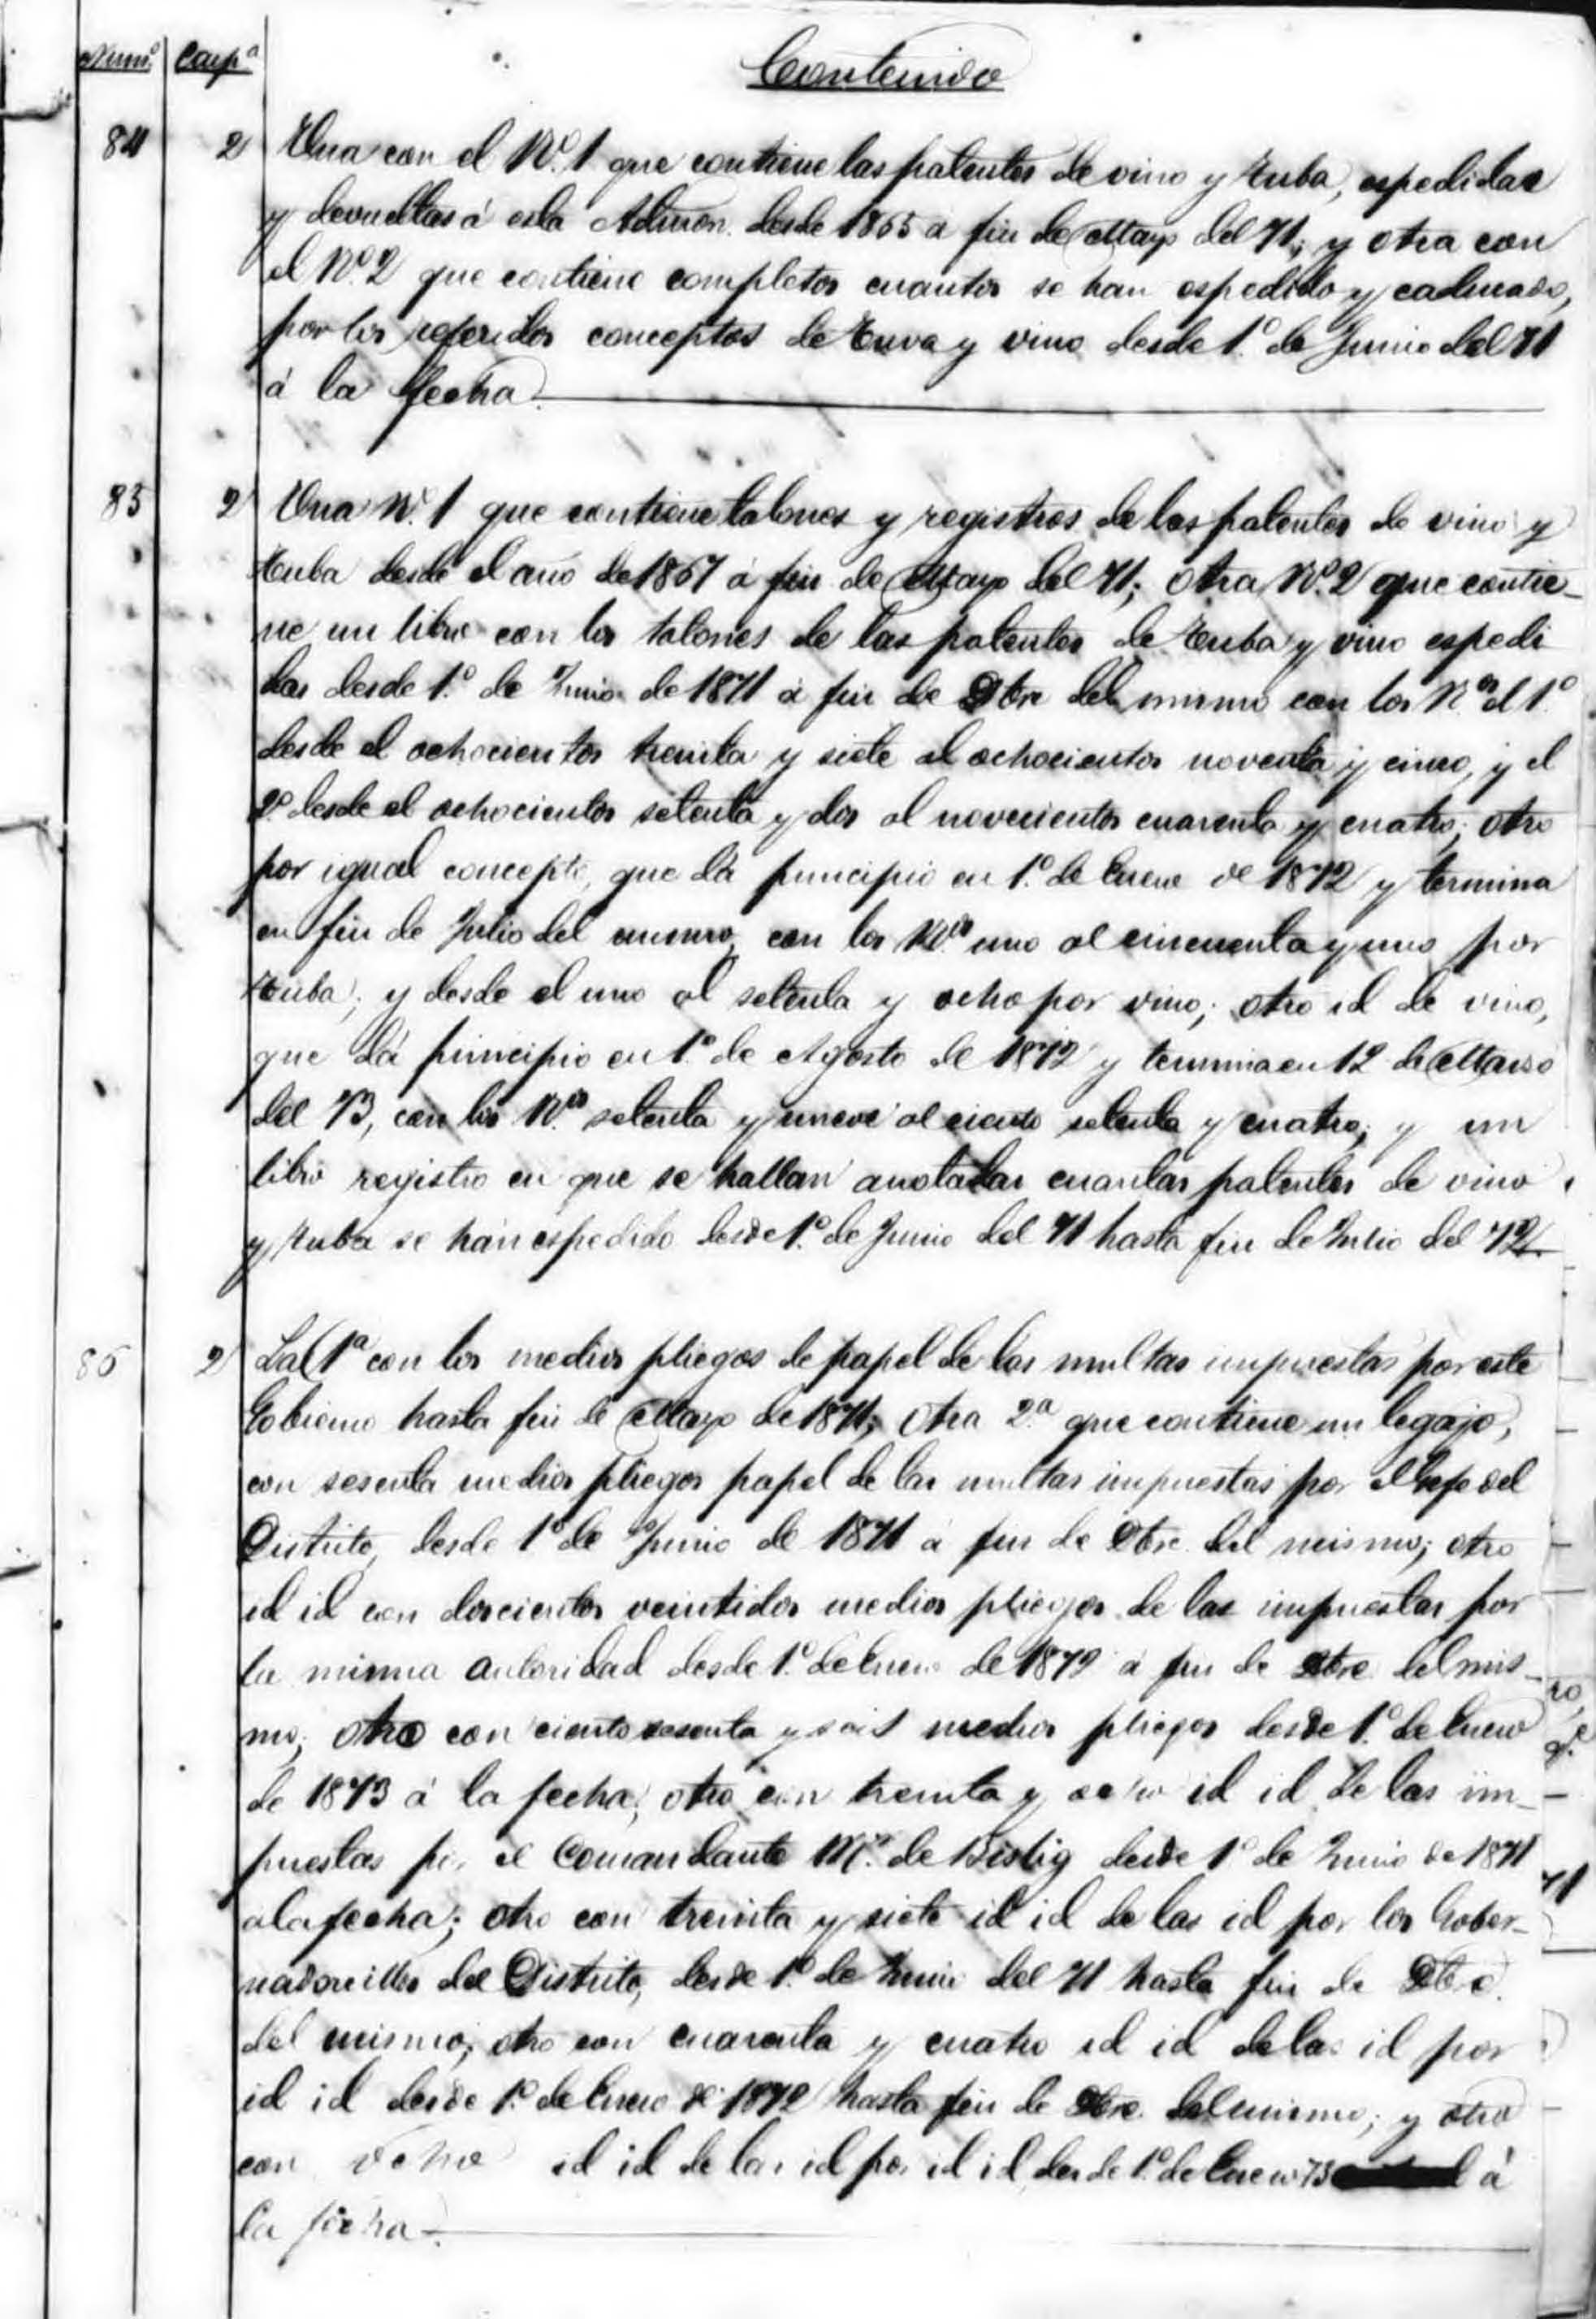 Num.º Carp.ª Contenido
84 2 Una con el Nº. 1 que contiene las patentes de vino y tuba, espedidas
y devueltas á esta Admon. desde 1865 á fin de Mayo del 71; y otra con
el Nº. 2 que contiene completos cuantos se han espedido y caducado,
por los referidos conceptos de tuva y vino desde 1.º de Junio del 71
á la fecha.
85 2 Una Nº. 1 que contiene talones y registros de las patentes de vino y
tuba desde el año de 1867 á fin de Mayo del 71; otra Nº. 2 que contie-
ne un libro con los talones de las patentes de tuba y vino espedi
das desde 1.º de Junio de 1871 á fin de Dbre del mismo con los N.os el 1.º
desde el ochocientos treinta y siete al ochocientos noventa y cinco, y el
2.º desde el ochocientos setenta y dos al novecientos cuarenta y cuatro; otro
por igual concepto, que dá principio en 1.º de Enero de 1872 y termina
en fin de Julio del mismo, con los N.os uno al cincuenta y uno por
tuba; y desde el uno al setenta y ocho por vino; otro id de vino,
que dá principio en 1.º de Agosto de 1872 y termina en 12 de Marzo
del 73, con los N.os setenta y nueve al ciento setenta y cuatro; y un
libro registro en que se hallan anotadas cuantas patentes de vino
y tuba se han espedido desde 1.º de Junio del 71 hasta fin de Julio del 72.
86 2 La 1ª con los medios pliegos de papel de las multas impuestas por este
Gobierno hasta fin de Mayo de 1871; otra 2.ª que contiene un legajo,
con sesenta medios pliegos papel de las multas impuestas por el Gefe del
Distrito, desde 1º de Junio de 1871 á fin de Dbre. del mismo; otro
id id con doscientos veintidos medios pliegos de las impuestas por
la misma autoridad desde 1.º de Enero de 1872 á fin de Dbre. del mis-
mo; otro con ciento sesenta y seis medios pliegos desde 1.º de Enero
de 1873 á la fecha; otro con treinta y ocho id id de las im-
puestas por el Comandante M.r de Bislig desde 1.º de Junio de 1871
a la fecha; otro con treinta y siete id id de las id por los Gober-
nadorcillos del Distrito, desde 1.º de Junio del 71 hasta fin de Dbre.
del mismo; otro con cuarenta y cuatro id id de las id por
id id desde 1.º de Enero de 1872 hasta fin de Dbre. del mismo; y otro
con ocho id id de las id por id id desde 1.º de Enero 73 á
la fecha.